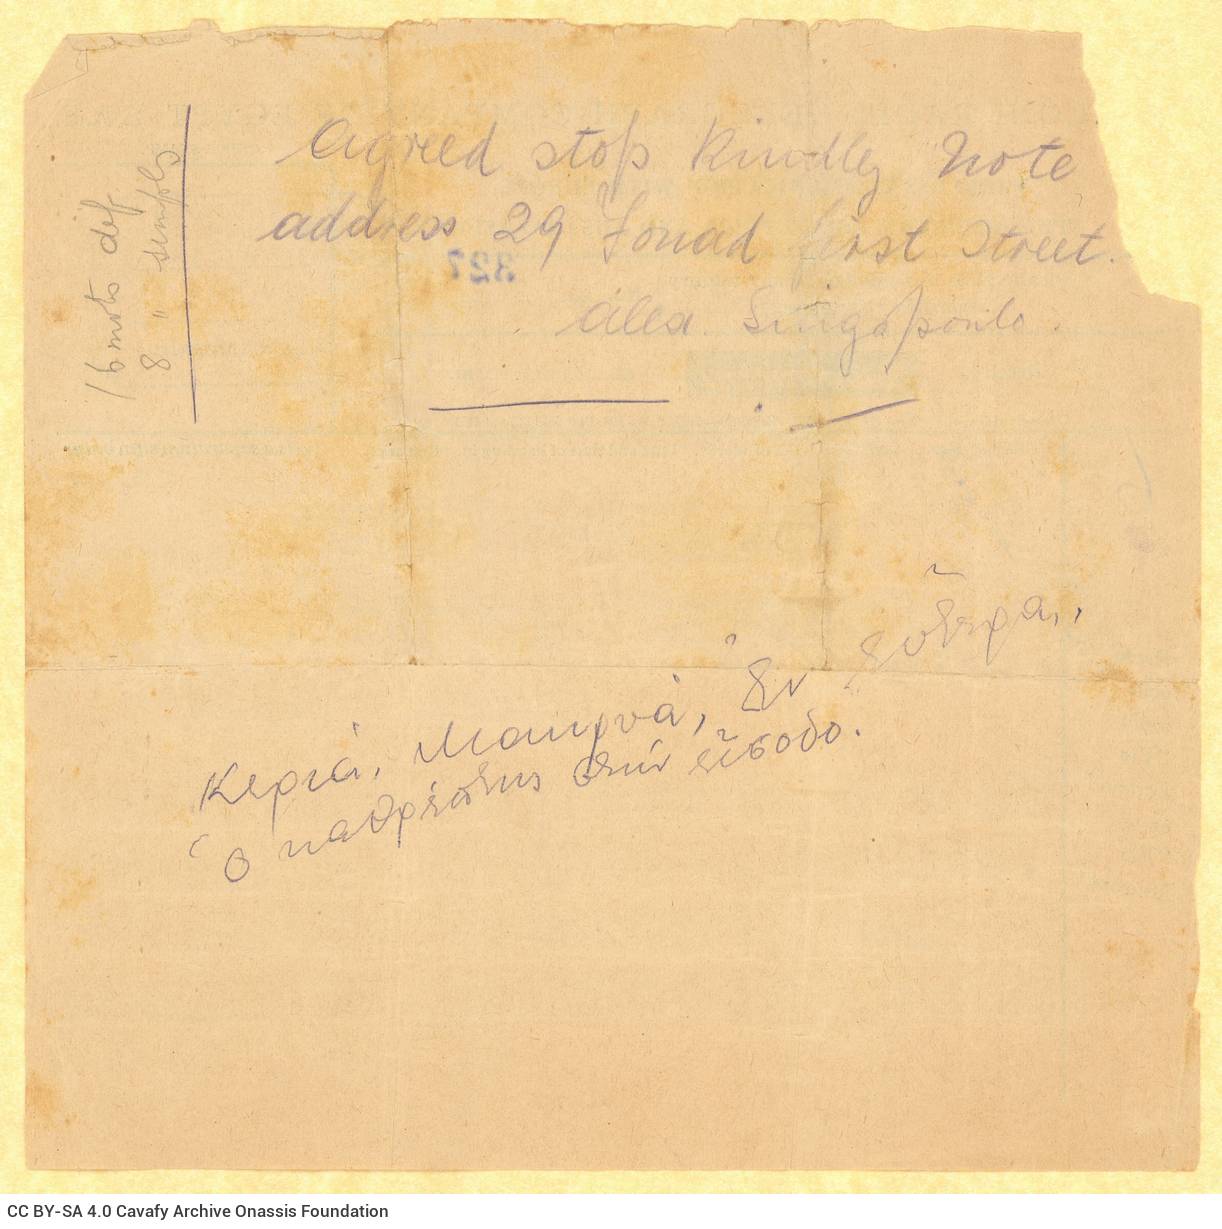 Agreed stop Kindly Note
address 29 Fouad first Street.
Alex. Singopoulo.
16 mots dif
8 " simples
327
Κεριά, Μακρυά, Ἐν ἑσπέρᾳ,
Ὁ καθρέπτης στὴν εἴσοδο.
CC BY-SA 4.0 Cavafy Archive Onassis Foundation